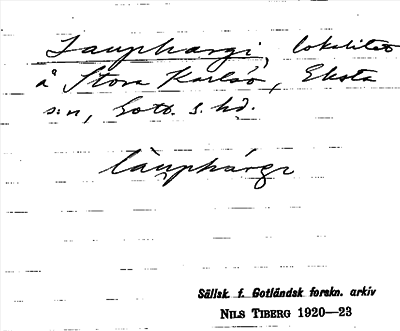 Lauphargi, lokalitet
å Stora Karlsö, Eksta
s:n, Gotl. s. hd.
làuphárgı
Sällsk. f. Gotländsk forskn. arkiv
NILS TIBERG 1920—23